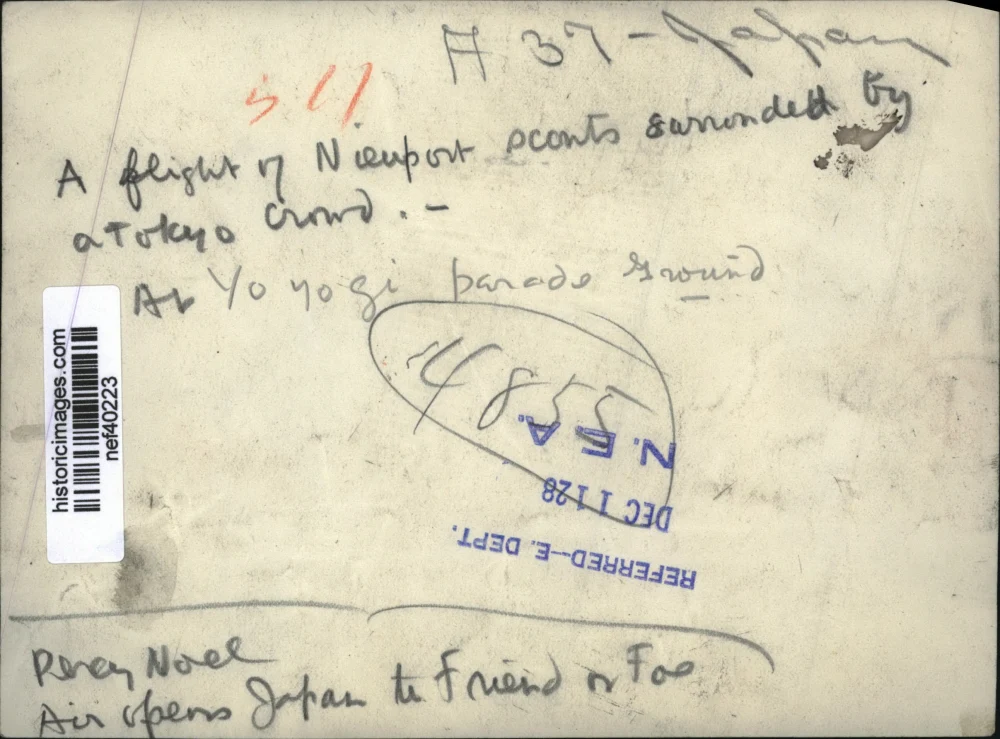 A 37 - Japan
511
A flight of Nieuport scouts surronded by
a Tokyo crowd. -
At Yoyogi parade ground
4855
N.E.A.
DEC 11 28
REFERRED--E. DEPT.
historicimages.com
nef40223
Percy Noel
Air opens Japan to Friend or Foe